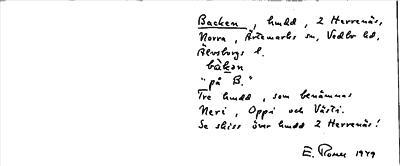 Backen, hmdd, 2 Herrenäs,
Norra, Ärtemarks sn, Vedbo hd,
Älvsborgs l.
bàkan
"på B."
Tre hmdd, som benämnas
Neri, Oppi och Västi.
Se skiss över hmdd 2 Herrenäs!
E. 1949